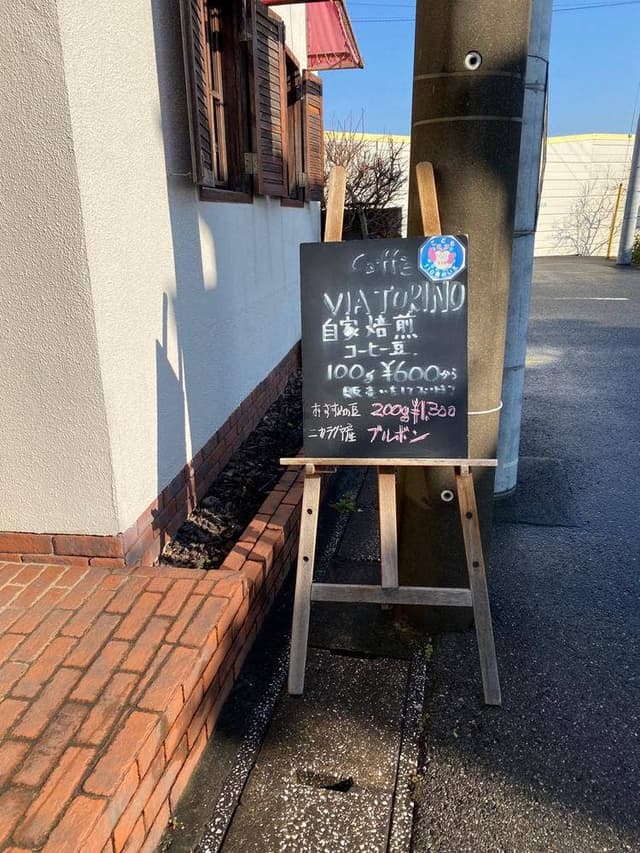 Caffè
VIA TORINO
自家焙煎
コーヒー豆
100g ¥600から
販売いたしております
おすすめの豆 200g ¥1,300
ニカラグア産 ブルボン